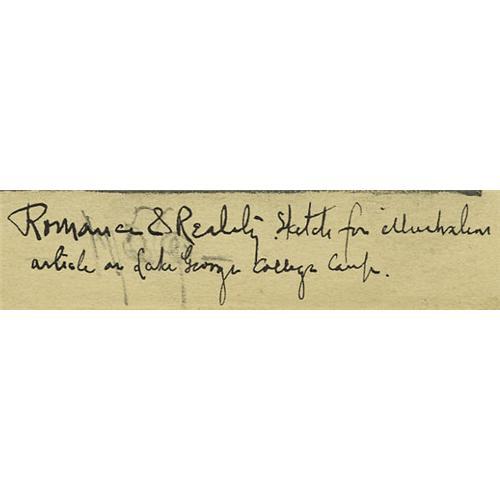 Romance & Reality. Sketch for illustration
article on Lake George College Camp.